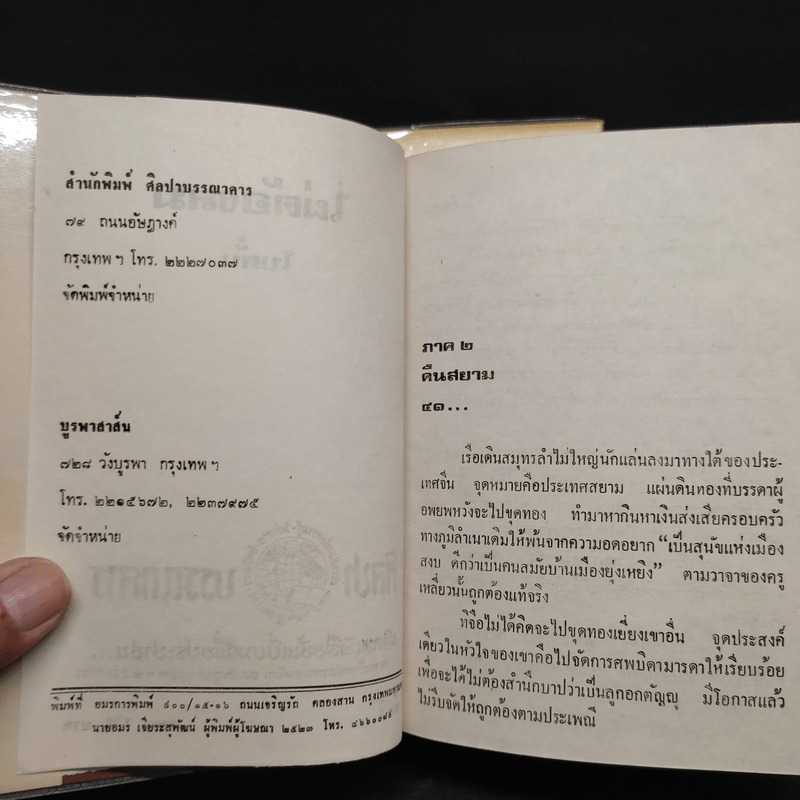 สำนักพิมพ์ ศิลปาบรรณาคาร
๗๙ ถนนอัษฎางค์
กรุงเทพฯ โทร. ๒๒๒๗๐๓๗
จัดพิมพ์จำหน่าย
บูรพาสาส์น
๗๒๘ วังบูรพา กรุงเทพฯ
โทร. ๒๒๑๕๖๗๒, ๒๒๓๗๙๗๕
จัดจำหน่าย
พิมพ์ที่ อมรการพิมพ์ ๘๐๐/๑๕-๑๖ ถนนเจริญรัถ คลองสาน
นายอมร เจียระสุพัฒน์ ผู้พิมพ์ผู้โฆษณา ๒๕๒๓ โทร.
ภาค ๒
คืนสยาม
๔๑...
เรือเดินสมุทรลำไม่ใหญ่นักแล่นลงมาทางใต้ของประ-
เทศจีน จุดหมายคือประเทศสยาม แผ่นดินทองที่บรรดาผู้
อพยพหวังจะไปขุดทอง ทำมาหากินหาเงินส่งเสียครอบครัว
ทางภูมิลำเนาเดิมให้พ้นจากความอดอยาก “เป็นสุนัขแห่งเมือง
สงบ ดีกว่าเป็นคนสมัยบ้านเมืองยุ่งเหยิง” ตามวาจาของครู
เหลี่ยวนั้นถูกต้องแท้จริง
ที่จือไม่ได้คิดจะไปขุดทองเยี่ยงเขาอื่น จุดประสงค์
เดียวในหัวใจของเขาคือไปจัดการศพบิดามารดาให้เรียบร้อย
เพื่อจะได้ไม่ต้องสำนึกบาปว่าเป็นลูกอกตัญญู มีโอกาสแล้ว
ไม่รีบจัดให้ถูกต้องตามประเพณี